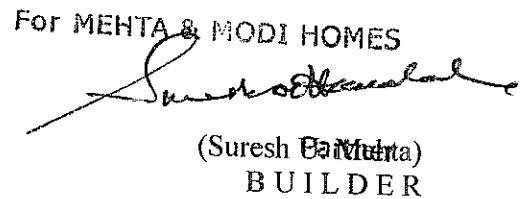 For MEHTA & MODI HOMES
(Suresh Mehta)
BUILDER